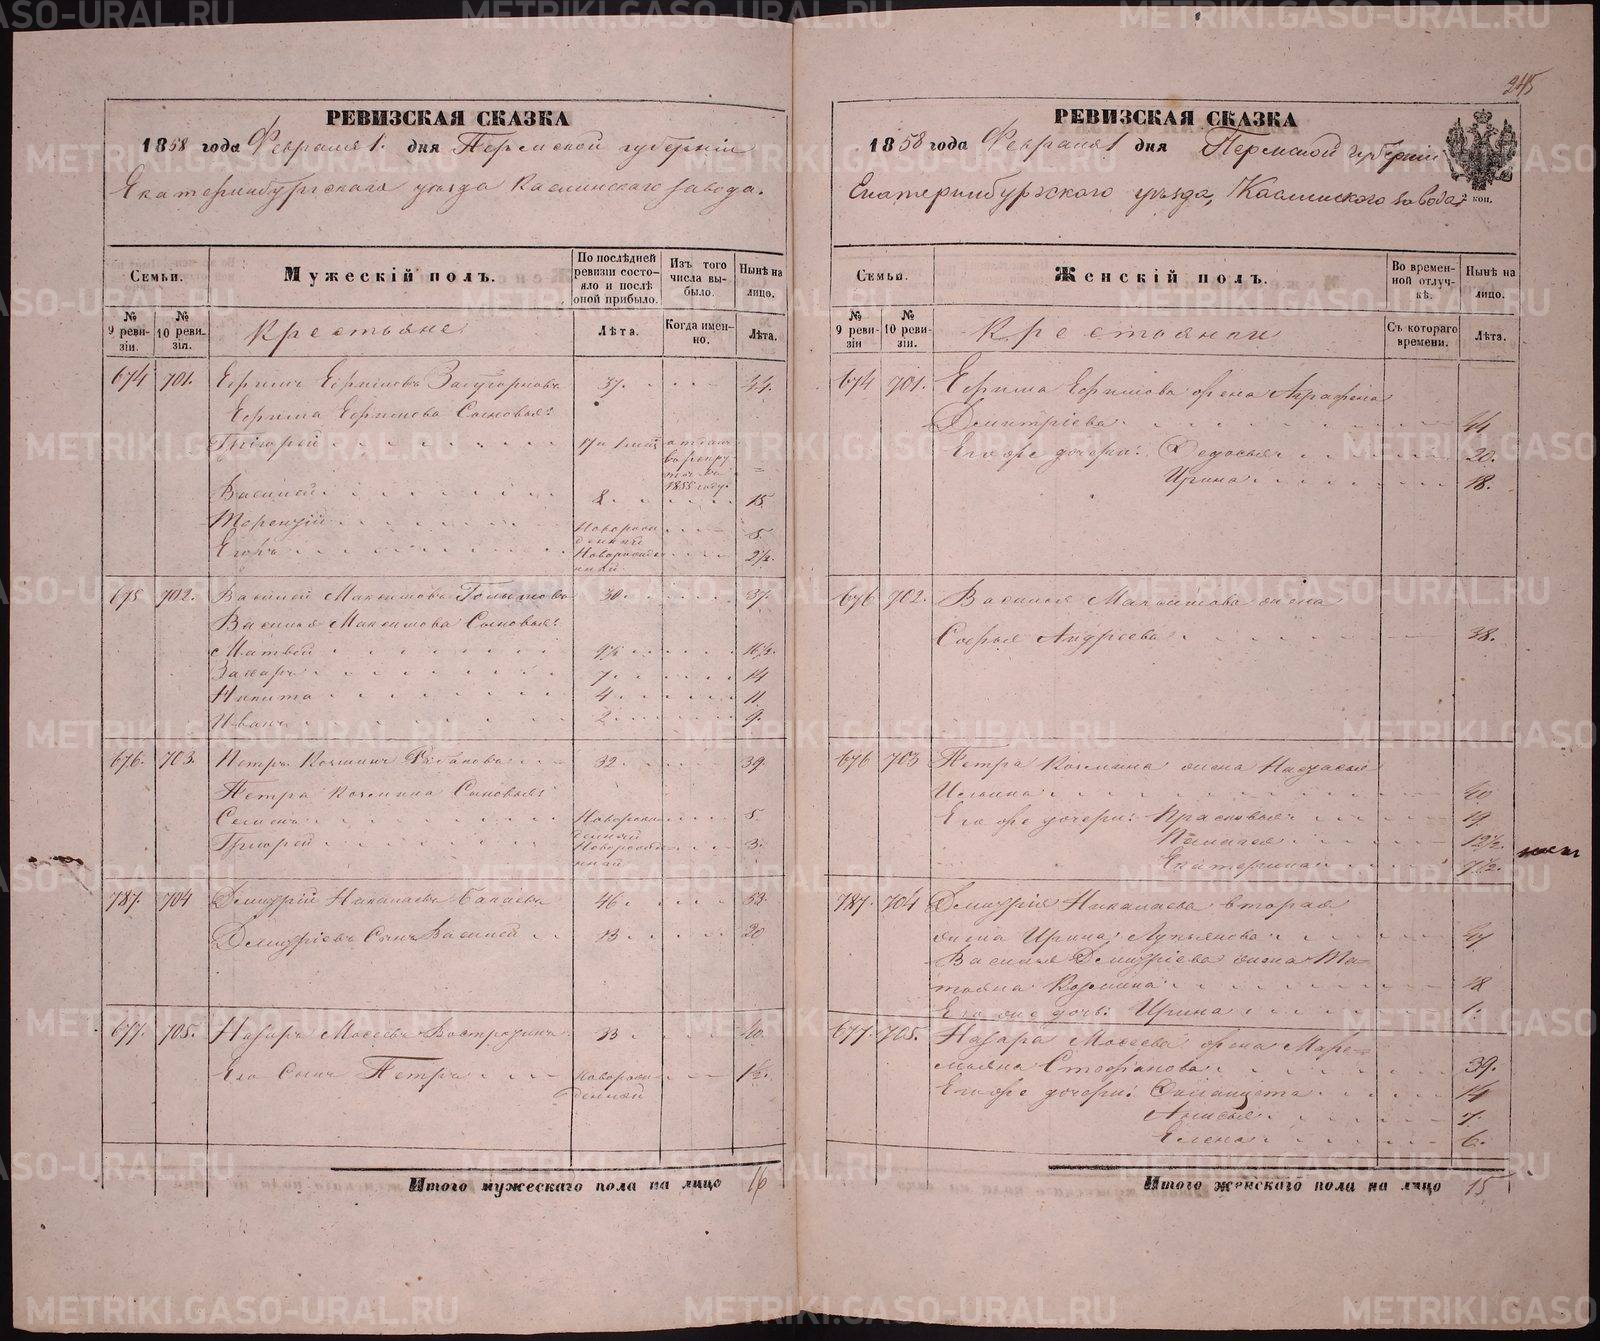 245
РЕВИЗСКАЯ СКАЗКА
1858 года Февраля 1. дня Пермской губерніи
Екатеринбургскаго уезда Каслинскаго завода.
Семьи.
Мужескій полъ.
По послѣдней ревизіи состояло и послѣ оной прибыло.
Изъ того числа выбыло.
Нынѣ на лицо.
№ 9 ревизіи.
№ 10 ревизіи.
Крестьяне
Лѣта.
Когда именно.
Лѣта.
674 701. Ефимъ Ефимовъ 37. 44.
Ефима Ефимова Сыновья:
Григорій отданъ въ рекруты въ 1855 году. =
Василей 8 15
Терентій Новорожденный 5.
Егоръ Новорожденный 2½.
675 702. Василей Максимовъ 30. 37.
Василья Максимова Сыновья:
Матвей 9½ 16½.
Захаръ 7. 14
Никита 4 11.
Иванъ 2 9.
676. 703. Петръ Козминъ Рябановъ 32. 39.
Петра Козмина Сыновья:
Семенъ Новорожденный 5.
Григорей Новорожденный 3.
787. 704 Дмитрій Николаевъ Балаевъ 46. 53.
Дмитріевъ Сынъ Василей 13 20
677. 705. Назаръ Мосеевъ Востротинъ 33 40.
Его Сынъ Петръ Новорожденной 1½.
Итого мужескаго пола на лицо 16
РЕВИЗСКАЯ СКАЗКА
1858 года Февраля 1 дня Пермской губерніи
Екатеринбургскаго уезда, Каслинскаго завода
коп.
Семьи.
Женскій полъ.
Во временной отлучкѣ.
Нынѣ на лицо.
№ 9 ревизіи
№ 10 ревизіи.
Крестьянки
Съ котораго времени.
Лѣта.
674 701. Ефима Ефимова жена Аграфена
Дмитріева 44
Его же дочери: Федосья 20.
Ирина 18.
676 702. Василья Максимова жена
Софья Андреева 38.
676 703 Петра Козмина жена Настасья
Ильина 40
Его же дочери: Прасковья 19.
Пелагея 12½.
Екатерина 7½.
787. 704 Дмитрія Николаева вторая
жена Ирина Лукьянова 47
Василья Дмитріева жена Татьяна Козмина 18
Его же дочь: Ирина 1.
677. 705. Назара Мосеева жена Маремьяна Стефанова 39.
Его же дочери: 14
Анисья 7.
Елена 6.
Итого женскаго пола на лицо 15
METRIKI.GASO-URAL.RU